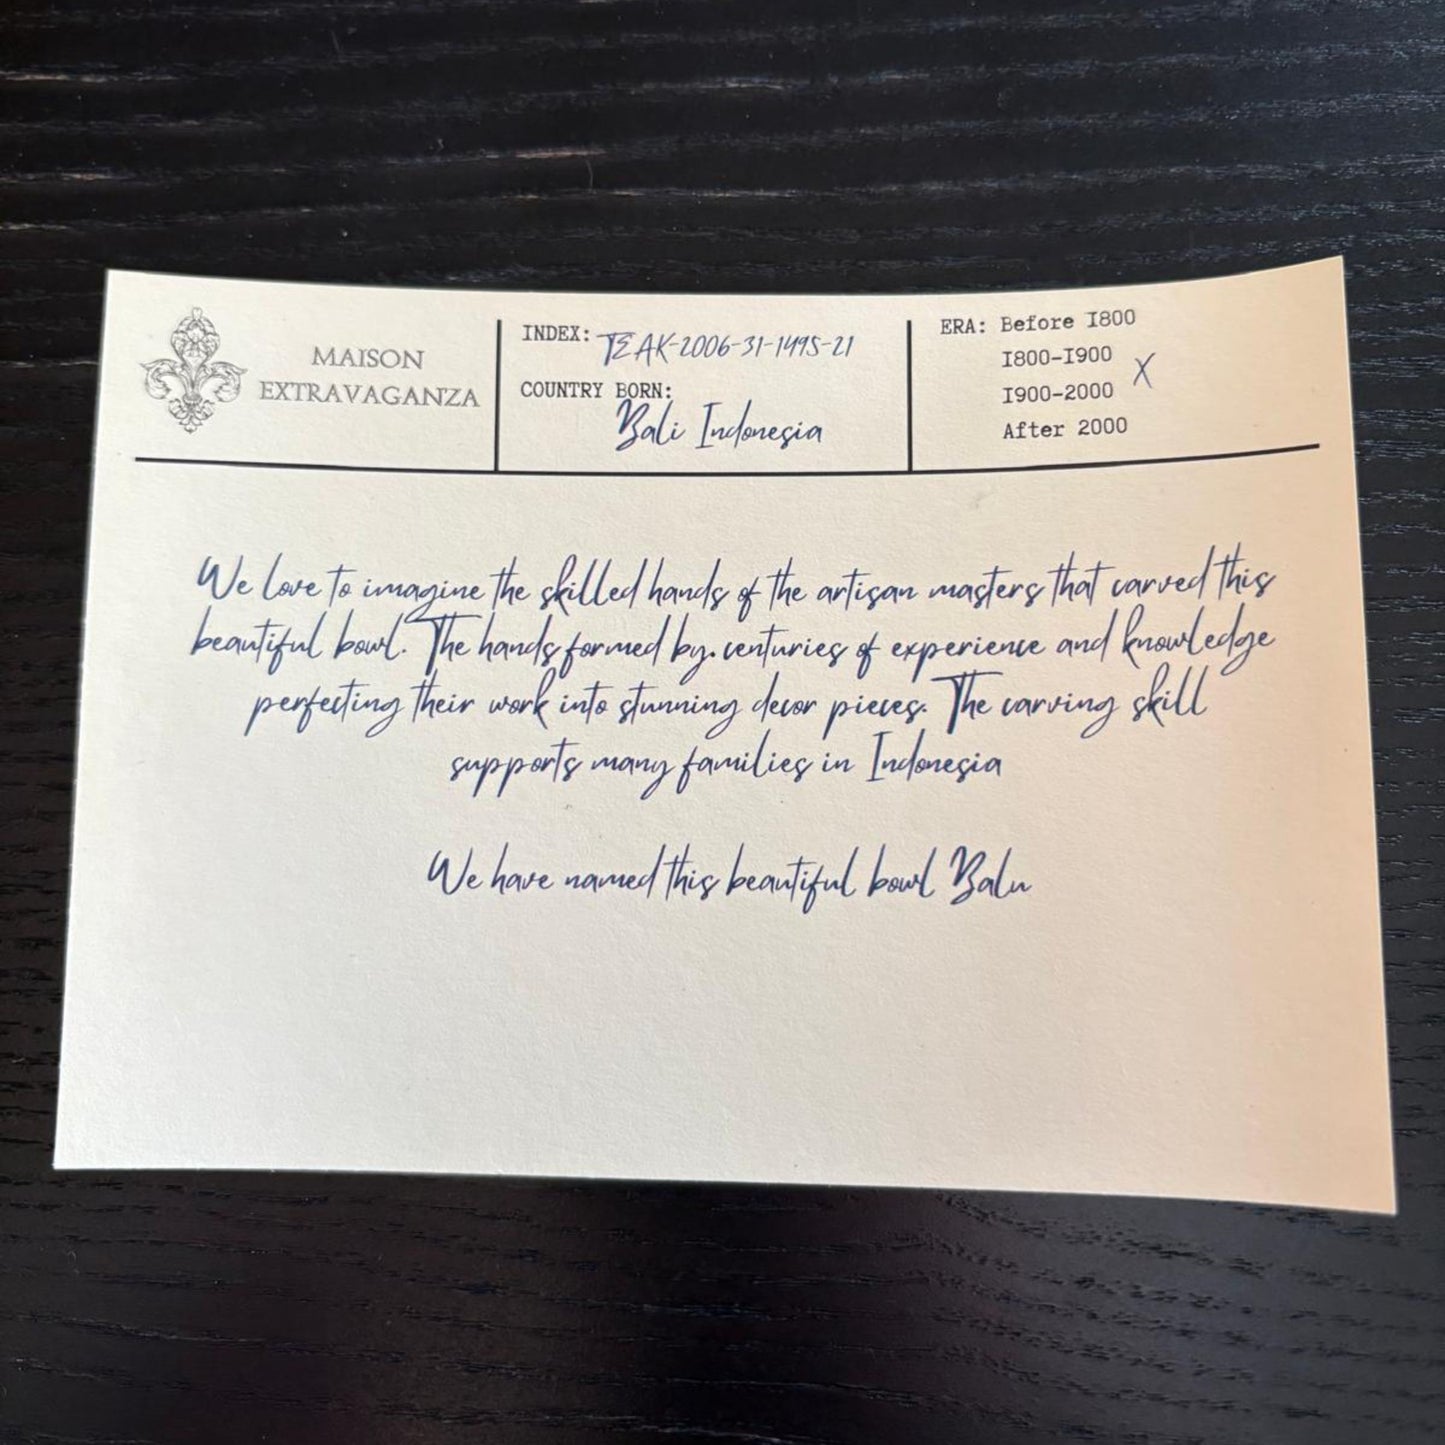 MAISON
EXTRAVAGANZA
INDEX: TEAK-2006-31-1495-21
COUNTRY BORN:
Bali Indonesia
ERA: Before I800
I800-I900
I900-2000
X
After 2000
We love to imagine the skilled hands of the artisan masters that carved this
beautiful bowl. The hands formed by.centuries of experience and knowledge
perfecting their work into stunning decor pieces. The carving skill
supports many families in Indonesia
We have named this beautiful bowl Balu